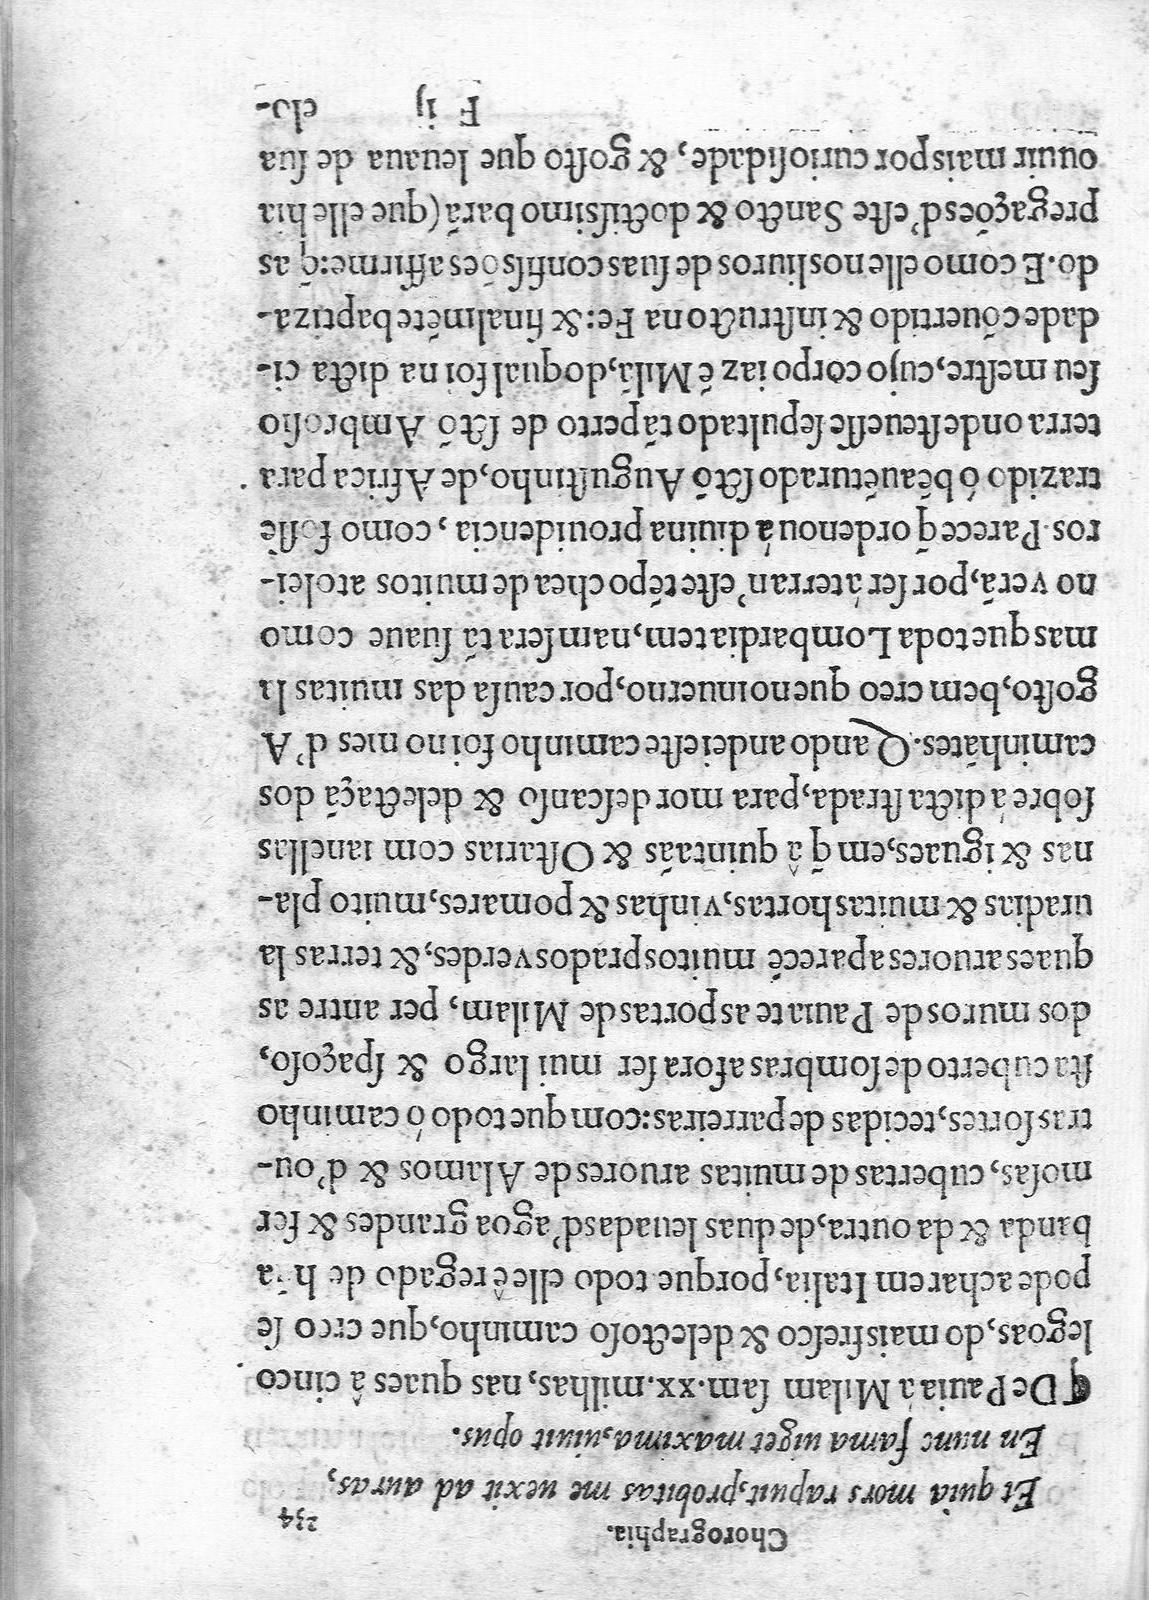 Chorographia. 234
Et quia mors rapuit, probitas me uexit ad auras,
En nunc fama uiget maxima, uiuit opus.
¶ De Pauia á Milam sam .xx. milhas, nas quaes â cinco
legoas, do mais fresco & delectoso caminho, que creo se
pode achar em Italia, porque todo elle ê regado de h˜ua
banda & da outra, de duas leuadas d'agoa grandes & fer
mosas, cubertas de muitas aruores de Alamos & d'ou-
tras sortes, tecidas de parreiras: com que todo ó caminho
sta cuberto de sombras a fora ser mui largo & spaçoso,
dos muros de Pauia te as portas de Milam, per antre as
quaes aruores aparecẽ muitos prados verdes, & terras la
uradias & muitas hortas, vinhas & pomares, muito pla-
nas & iguaes, em q̃ â quintaãs & Ostarias com ianellas
sobre á dicta strada, para mor descanso & delectaçã dos
caminhãtes. Qando andei este caminho foi no mes d'A
gosto, bem creo que no inuerno, por causa das muitas la
mas que toda Lombardia tem, nam sera tã suaue como
no verã, por ser á terra n'este tẽpo chea de muitos atolei-
ros. Parece q̃ ordenou á diuina prouidencia, como fosse
trazido ó bẽauẽturado sctõ Augustinho, de Africa para
terra onde steuesse sepultado tã perto de sctõ Ambrosio
seu mestre, cujo corpo iaz ẽ Milã, do qual foi na dicta ci-
dade cõuertido & instructo na Fe: & finalmẽte baptiza-
do. E como elle nos liuros de suas confissões affirme: q̃ as
pregações d'este Sancto & doctissimo barã (que elle hia
ouuir mais por curiosidade, & gosto que leuaua de sua
F ij elo-